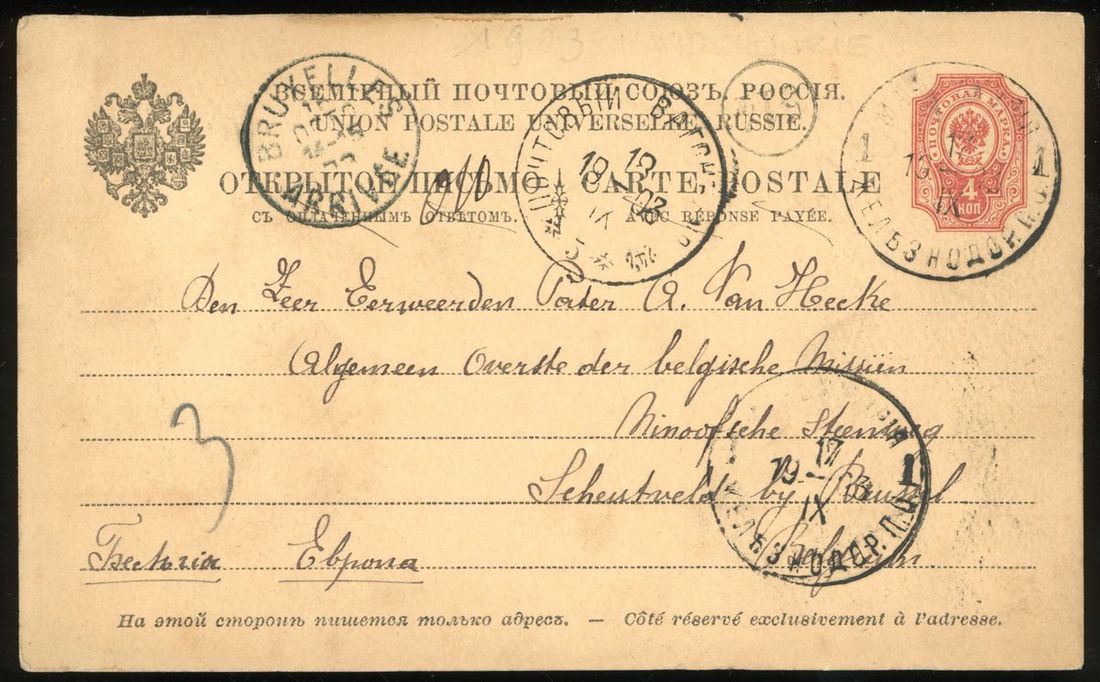 1903
ВСЕМІРНЫЙ ПОЧТОВЫЙ СОЮЗЪ. РОССІЯ.
UNION POSTALE UNIVERSELLE. RUSSIE.
ОТКРЫТОЕ ПИСЬМО — CARTE POSTALE
СЪ ОПЛАЧЕННЫМЪ ОТВѢТОМЪ. AVEC RÉPONSE PAYÉE.
BRUXELLES
ARRIVÉE
ПОЧТОВЫЙ ВАГОНЪ
19 19
IX 03
ПОЧТОВАЯ МАРКА
4
КОП
1 1
19
IX
ЖЕЛѢЗНОДОР. П.О.
Den Zeer Eerweerden Pater A. Van Hecke
Algemeen Overste der belgische Missiën
Ninoofsche Steenweg
Scheutveld by Brussel
Бельгія Европа
3
17
19 — 3
IX
1
ЖЕЛѢЗНОДОР. П.О.
На этой сторонѣ пишется только адресъ. — Côté réservé exclusivement à l'adresse.